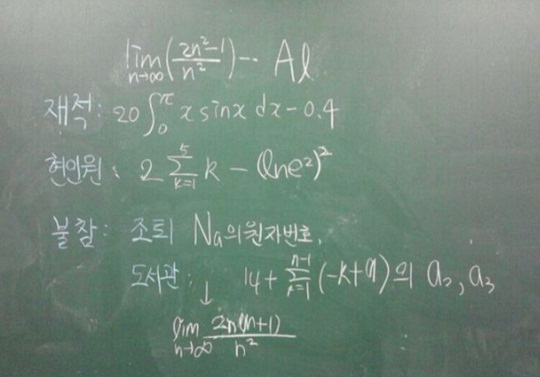 lim n→∞ (2n²-1 / n²) -- Al
재적: 20 ∫₀^π x sinx dx - 0.4
현인원: 2 ∑_{k=1}^{5} k - (lne²)²
불참: 조퇴 Na의 원자번호,
도서관: 14 + ∑^{n-1} (-k+9) 의 a₂, a₃
↓
lim n→∞ 2n(n+1) / n²